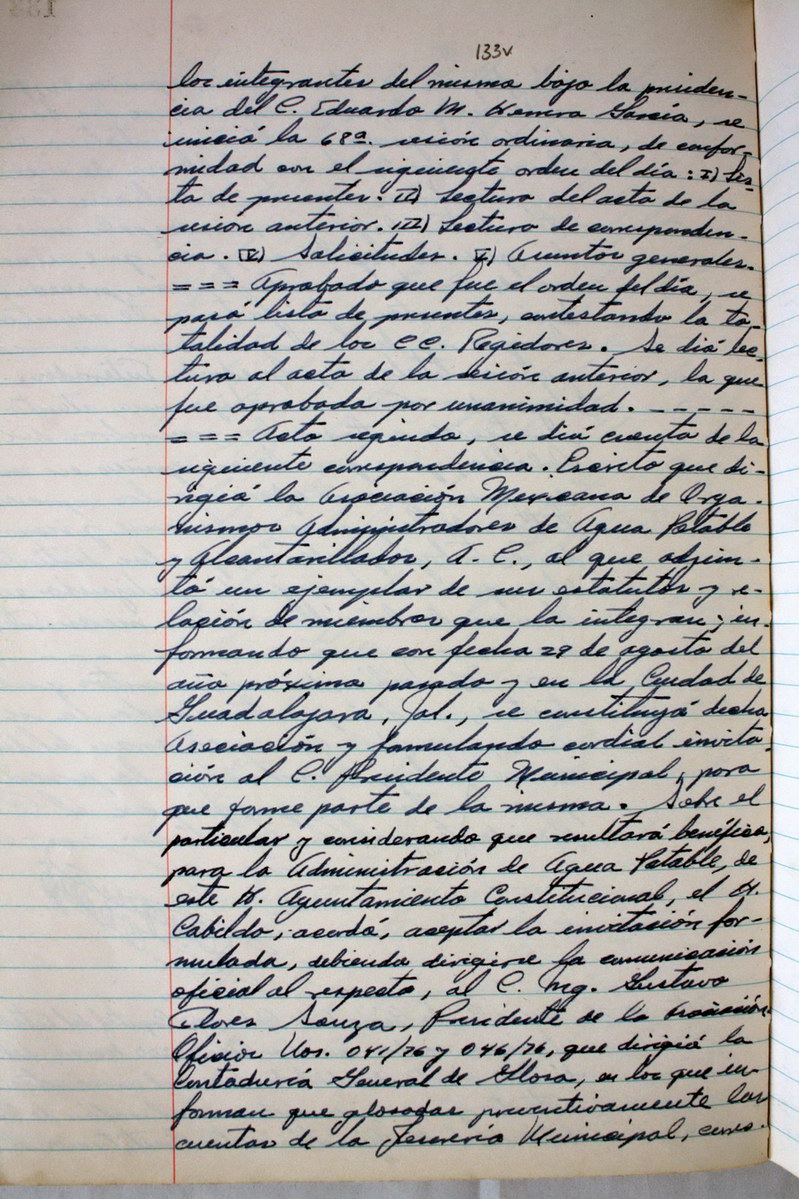 133v
los integrantes del mismo bajo la presiden-
cia del C. Eduardo M. Herrera García, se
inició la 68ª. sesión ordinaria, de confor-
midad con el siguiente orden del día: I) Lis-
ta de presentes. II) Lectura del acta de la
sesión anterior. III) Lectura de corresponden-
cia. IV) Solicitudes. V) Asuntos generales.
= = = Aprobado que fue el orden del día, se
pasó lista de presentes, contestando la to-
talidad de los CC. Regidores. Se dió lec-
tura al acta de la sesión anterior, la que
fue aprobada por unanimidad. - - - - -
= = = Acto seguido, se dió cuenta de la
siguiente correspondencia. Escrito que di-
rigió la Asociación Mexicana de Orga-
nismos Administradores de Agua Potable
y Alcantarillados, A. C., al que adjun-
tó un ejemplar de sus estatutos y re-
lación de miembros que la integran; in-
formando que con fecha 29 de agosto del
año próximo pasado y en la Ciudad de
Guadalajara, Jal., se constituyó dicha
Asociación y formulando cordial invita-
ción al C. Presidente Municipal, para
que forme parte de la misma. Sobre el
particular y considerando que resultará benéfico,
para la Administración de Agua Potable, de
este H. Ayuntamiento Constitucional, el H.
Cabildo, acordó, aceptar la invitación for-
mulada, debiendo dirigirse la comunicación
oficial al respecto, al C. Ing. Gustavo
Flores Souza, Presidente de la Asociación.
Oficios Nos. 041/76 y 046/76, que dirigió la
Contaduría General de Glosa, en los que in-
forman que glosadas preventivamente las
cuentas de la Tesorería Municipal, corres-